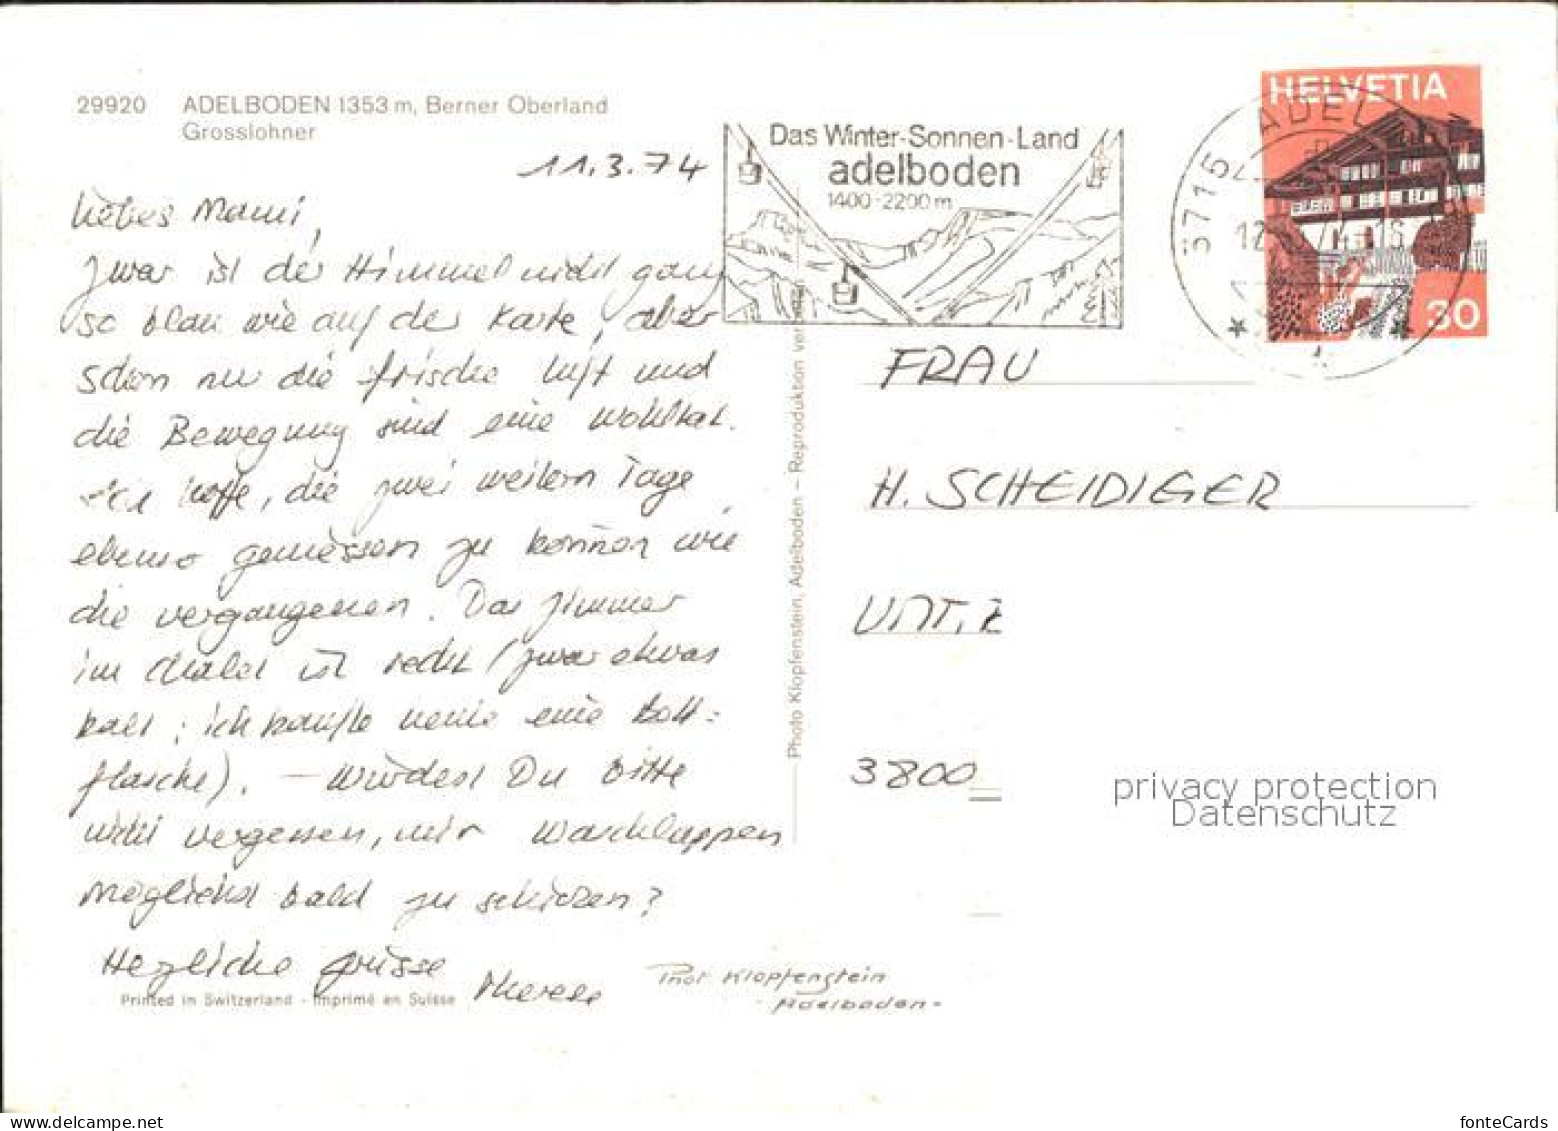 29920 ADELBODEN 1353 m, Berner Oberland
Grosslohner
11.3.74
Liebes Mami,
Zwar ist der Himmel nicht ganz
so blau wie auf der Karte, aber
schon nur die frische Luft und
die Bewegung sind eine Wohltat.
Ich hoffe, die zwei weitern Tage
ebenso geniessen zu können wie
die vergangenen. Das Zimmer
im Chalet ist recht (zwar etwas
kalt; ich kaufte heute eine Bett-
flasche). – Würdest Du bitte
nicht vergessen, mir Waschlappen
möglichst bald zu schicken?
Herzliche Grüsse
Therese
Printed in Switzerland - Imprimé en Suisse
Phot Klopfenstein
- Adelboden -
Photo Klopfenstein, Adelboden – Reproduktion verboten
Das Winter-Sonnen-Land
adelboden
1400-2200 m
3715 ADEL
HELVETIA
30
FRAU
H. SCHEIDIGER
UNT.
3800
privacy protection
Datenschutz
delcampe.net
fonteCards